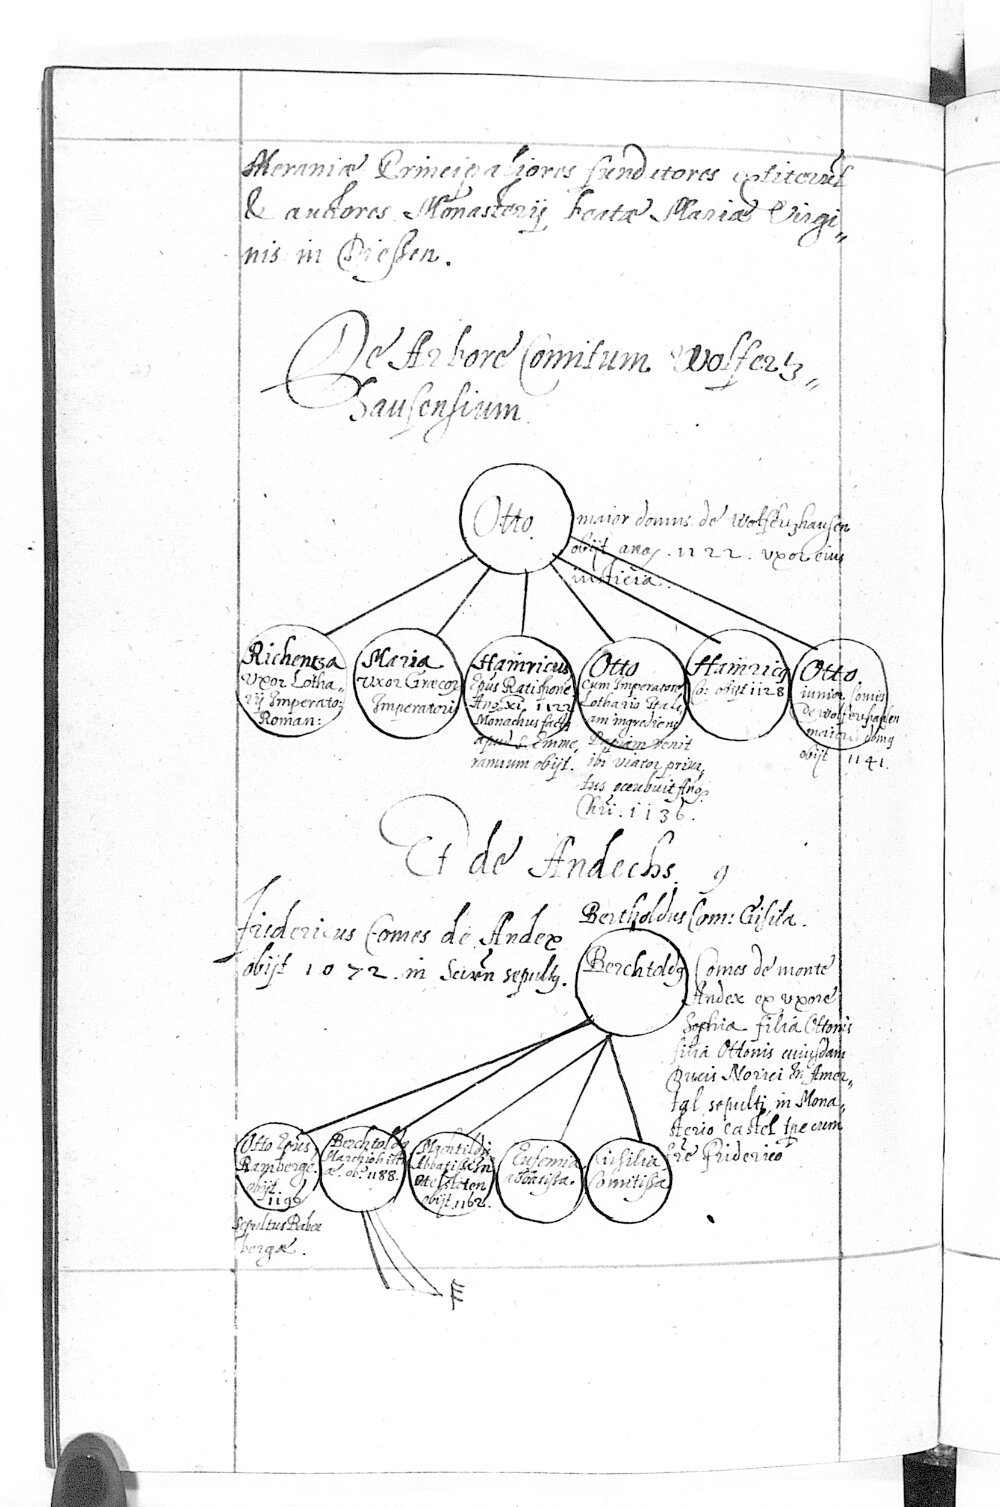 Meraniæ Principaliores fundatores extiterũt
& authores Monasterij beatæ Mariæ Virgi„
nis in Diessen.
De Arbore Comitum Wolferz„
hausensium.
Otto.
maior domus de Wolferzhausen
obijt ano, 1122. vxor eius
iusticia.
Richentza
vxor Lotha„
rij Imperato:
Roman:
Maria
vxor Græcor
Imperatori
Hainricus
Epus Ratispone
Ano. XI. 1122
Monachus facto
apud S. Emme,
ramium obijt.
Otto
cum Imperatore
Lothario Itali,
am ingrediens
Papiam venit
ibi viator priva,
tus occubuit Ano.
Chri. 1136.
Hainricq
Co: obijt 1128
Otto.
iunior Comes
de Wolferzhausen
maioris domq
obijt 1141.
Et de Andechs.
Fridericus Comes de Andex
obijt 1072. in Seivñ sepultq.
Bertholdus Com: Gisila.
Berchtoldq
Comes de monte
Andex ex vxore
Sophia filia Ottonis
filia Ottonis cuiusdam
Ducis Norici in Amer„
tal sepultq in Mona„
sterio Castel ipe cum
fre Friderico
Otto Epus
Bamberge.
obijt
1196
sepultus Babe
bergæ.
Berchtoldq
Marchio histri
æ ob: 1188.
Machtildis
Abbatissa in
Otelsteten
obijt 1162.
Eufemia
abbatissa.
Gisilia
Comitissa